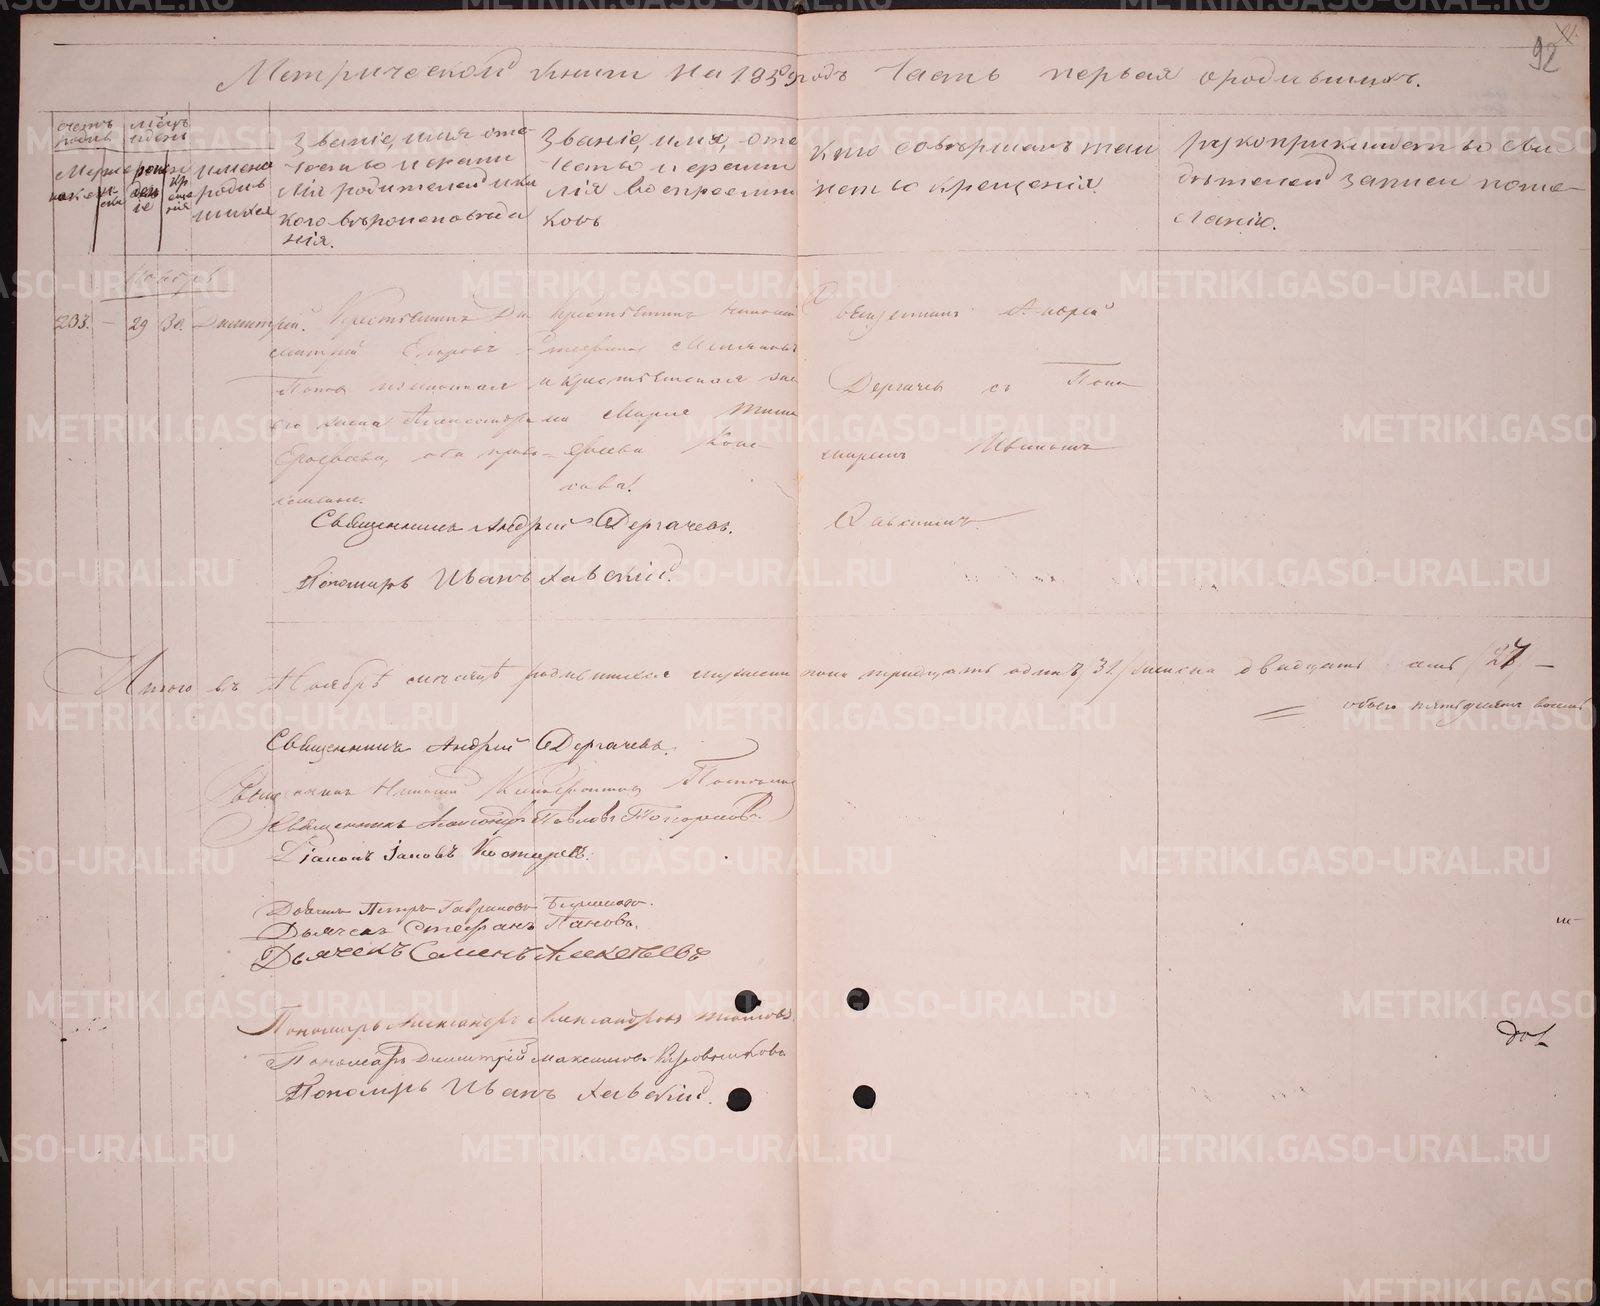 92
Метрической книги на 1859 годъ Часть первая о родившихся.
Счетъ родив
Мѣсяцъ и день
Муже
женс
рожд
ден
кр
имена родив шихся
Званіе, имя оте
чество и фами
лія родителей и ка
кого вѣроисповѣда
нія.
Званіе, имя, оте
чество и фами
лія воспріемни
ковъ
Кто совершалъ таи
нство крещенія.
Рукоприкладство сви
дѣтелей записи по же
ланію.
Ноябрь
203. – 29 30. Димитрій.
Крестьянинъ Ди
митрій Егоровъ
Поповъ и законная
его жена Александра
Ерофѣева, оба право
славные.
Крестьянинъ Николай
и крестьянская же
на Марія Тимо
фѣева
Священникъ Андрей
Дергачевъ съ Поно
маремъ Иваномъ
Хавскимъ
Священникъ Андрей Дергачевъ.
Пономарь Иванъ Хавскій.
Итого въ Ноябрѣ мѣсяцѣ родившихся мужеска пола тридцать одинъ /31/ женска двадцать семь /27/ –
обоего пятьдесятъ восемь
Священникъ Андрей Дергачевъ.
Священникъ Николай
Священникъ Александръ Павловъ
Діаконъ Іаковъ Костаревъ.
Дьячекъ Петръ Гавриловъ
Дьячекъ Стефанъ Пановъ.
Дьячекъ Семенъ Алексѣевъ
Пономарь Александръ Александровъ
Пономарь Димитрій Максимовъ
Пономарь Иванъ Хавскій.